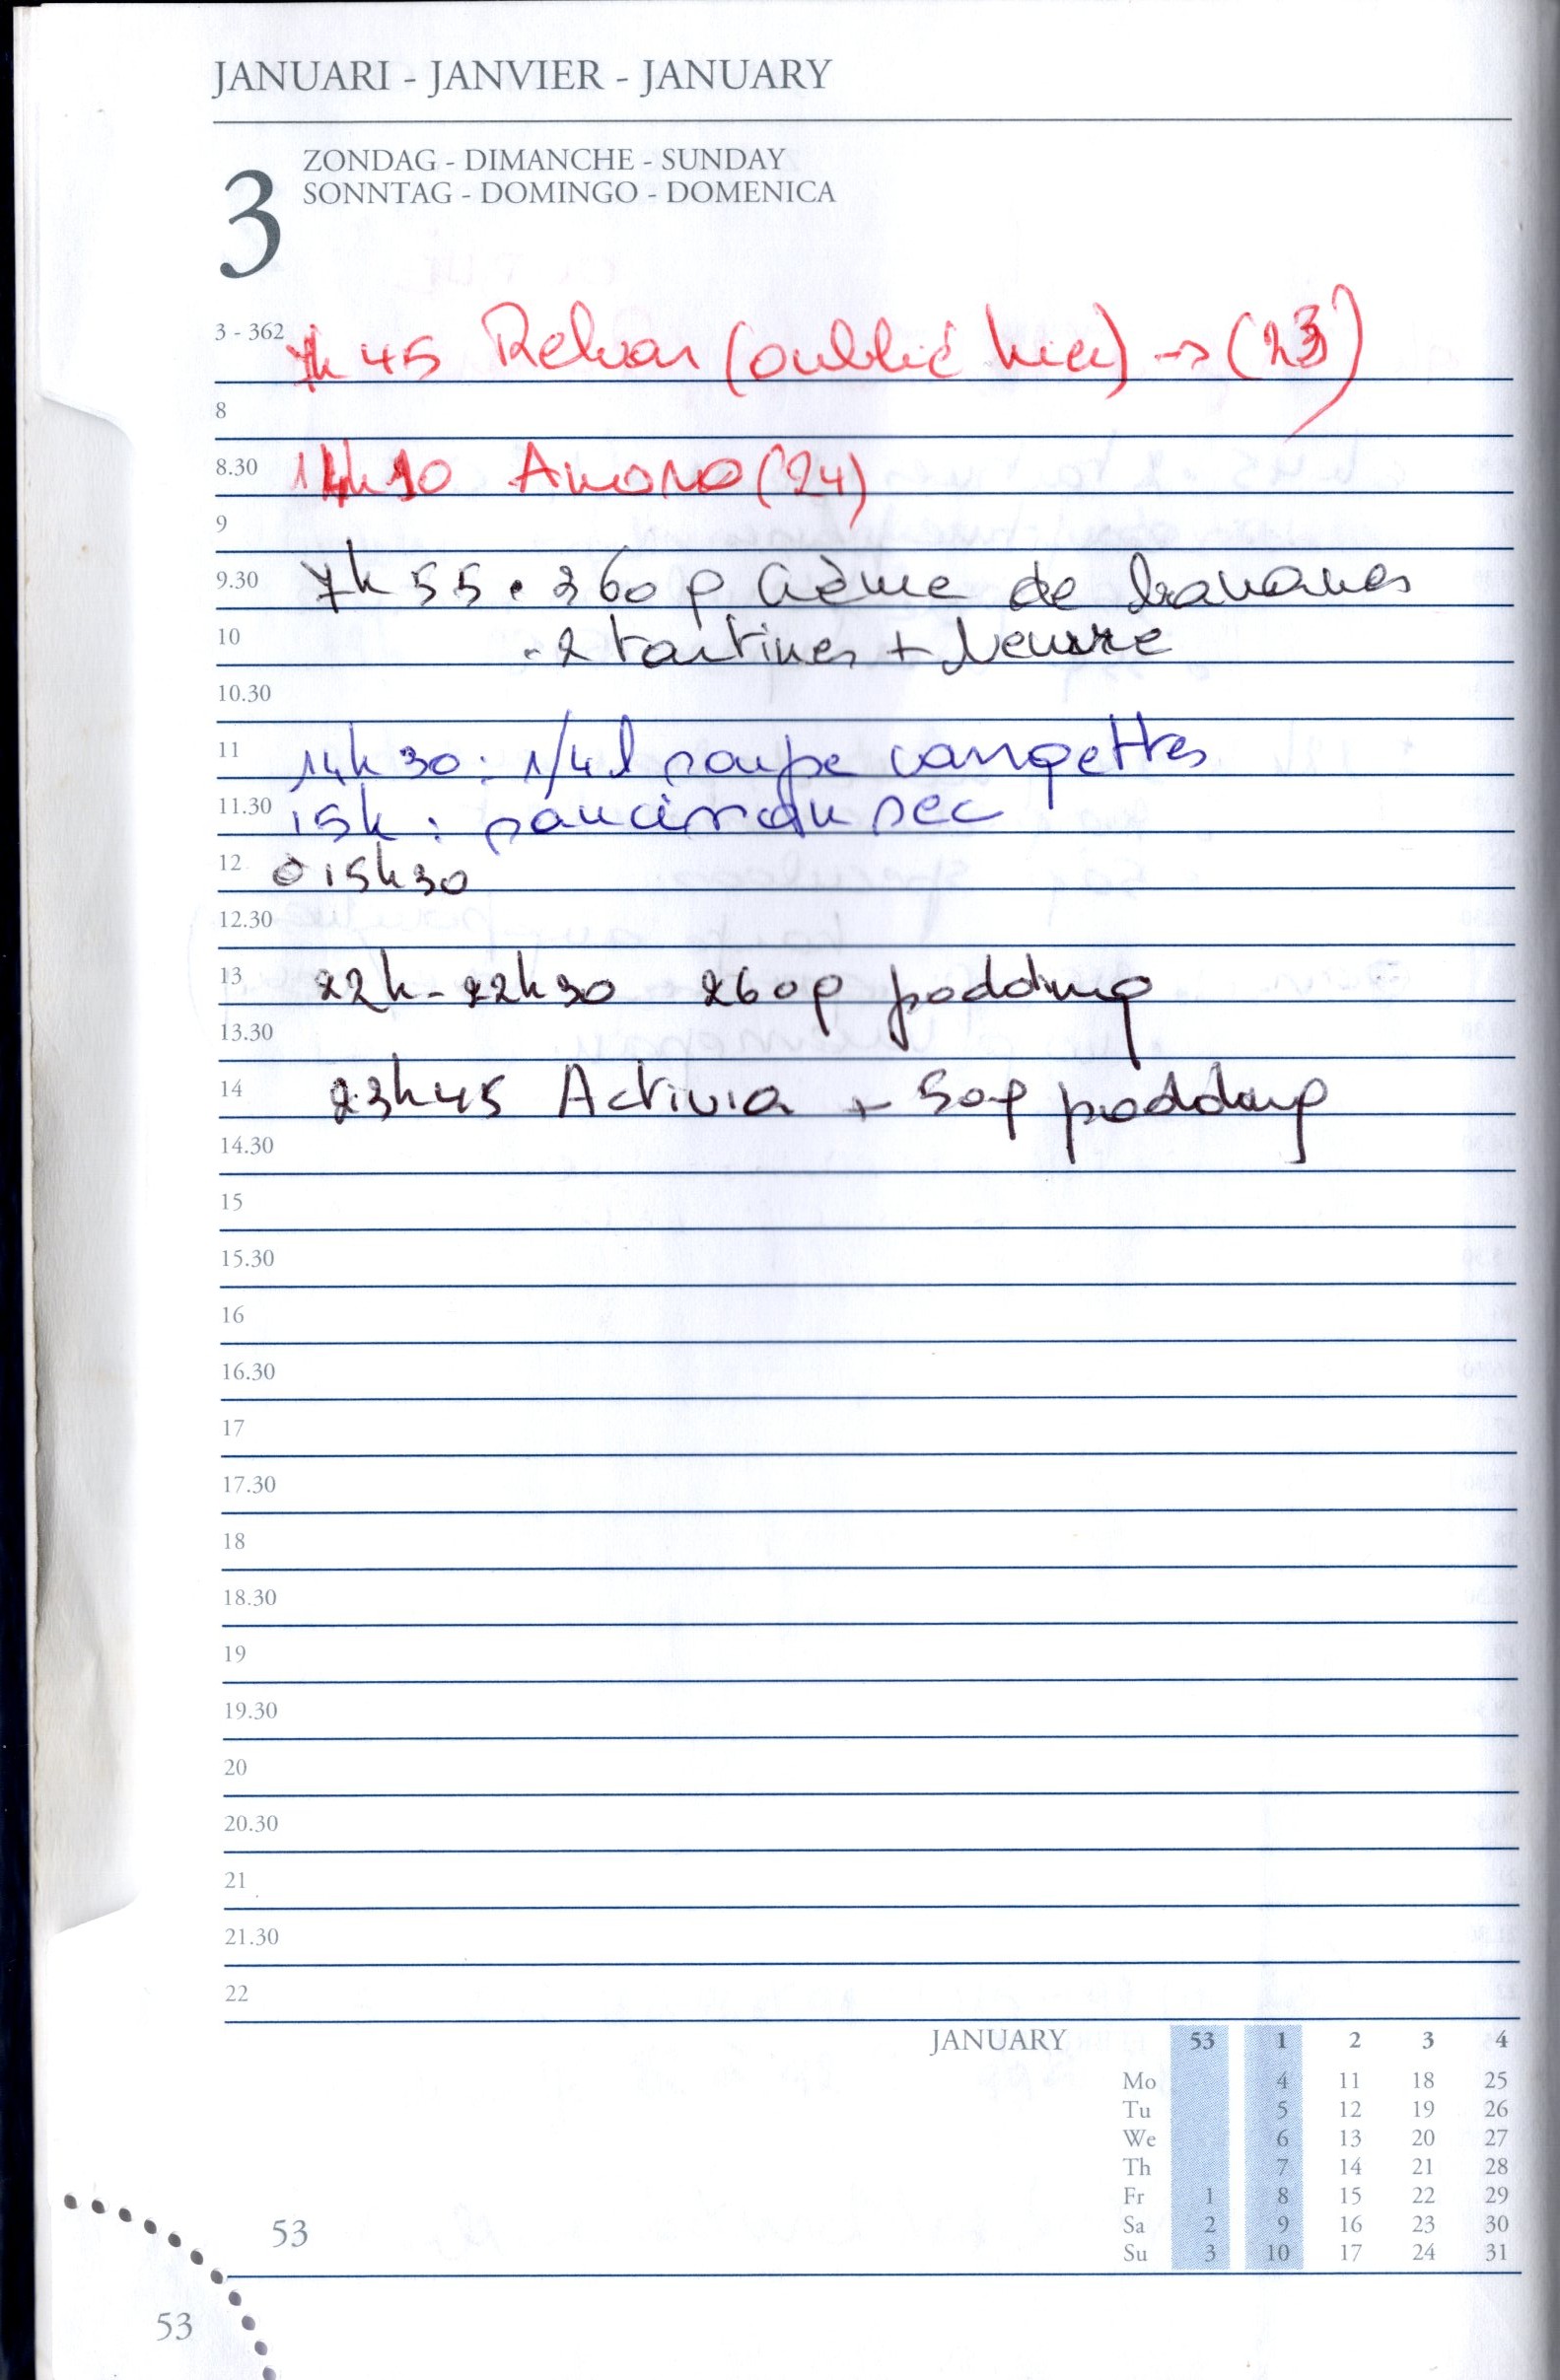 JANUARI - JANVIER - JANUARY
3
ZONDAG - DIMANCHE - SUNDAY
SONNTAG - DOMINGO - DOMENICA
3 - 362
7h45 Relvar (oublié hier) → (23)
8
8.30 14h10 Amoro (24)
9
9.30 7h55 • 260g crème de bananes
10 • 2 tartines + beurre
10.30
11 14h30 : 1/4 l soupe courgettes
11.30 15h : saucisson sec
12 15h30
12.30
13 22h - 22h30 260g pudding
13.30
14 23h45 Activia + 50g pudding
14.30
15
15.30
16
16.30
17
17.30
18
18.30
19
19.30
20
20.30
21
21.30
22
JANUARY 53 1 2 3 4
Mo 4 11 18 25
Tu 5 12 19 26
We 6 13 20 27
Th 7 14 21 28
Fr 1 8 15 22 29
Sa 2 9 16 23 30
Su 3 10 17 24 31
53
53